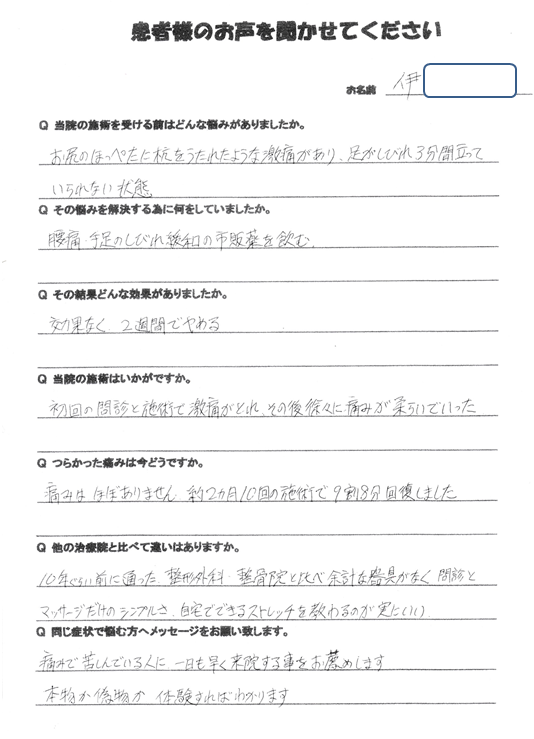 患者様のお声を聞かせてください
お名前 伊
Q 当院の施術を受ける前はどんな悩みがありましたか。
お尻のほっぺたに杭をうたれたような激痛があり、足がしびれ3分間立って
いられない状態
Q その悩みを解決する為に何をしていましたか。
腰痛・手足のしびれ緩和の市販薬を飲む。
Q その結果どんな効果がありましたか。
効果なく 2週間でやめる
Q 当院の施術はいかがですか。
初回の問診と施術で激痛がとれ、その後徐々に痛みが柔らいでいった
Q つらかった痛みは今どうですか。
痛みは ほぼありません 約2カ月10回の施術で9割8分回復しました
Q 他の治療院と比べて違いはありますか。
10年ぐらい前に通った 整形外科・整骨院と比べ余計な器具がなく 問診と
マッサージだけのシンプルさ、自宅でできるストレッチを教わるのが実にいい。
Q 同じ症状で悩む方へメッセージをお願い致します。
痛みで苦しんでいる人に 一日も早く来院する事をお薦めします
本物か偽物か 体験すればわかります